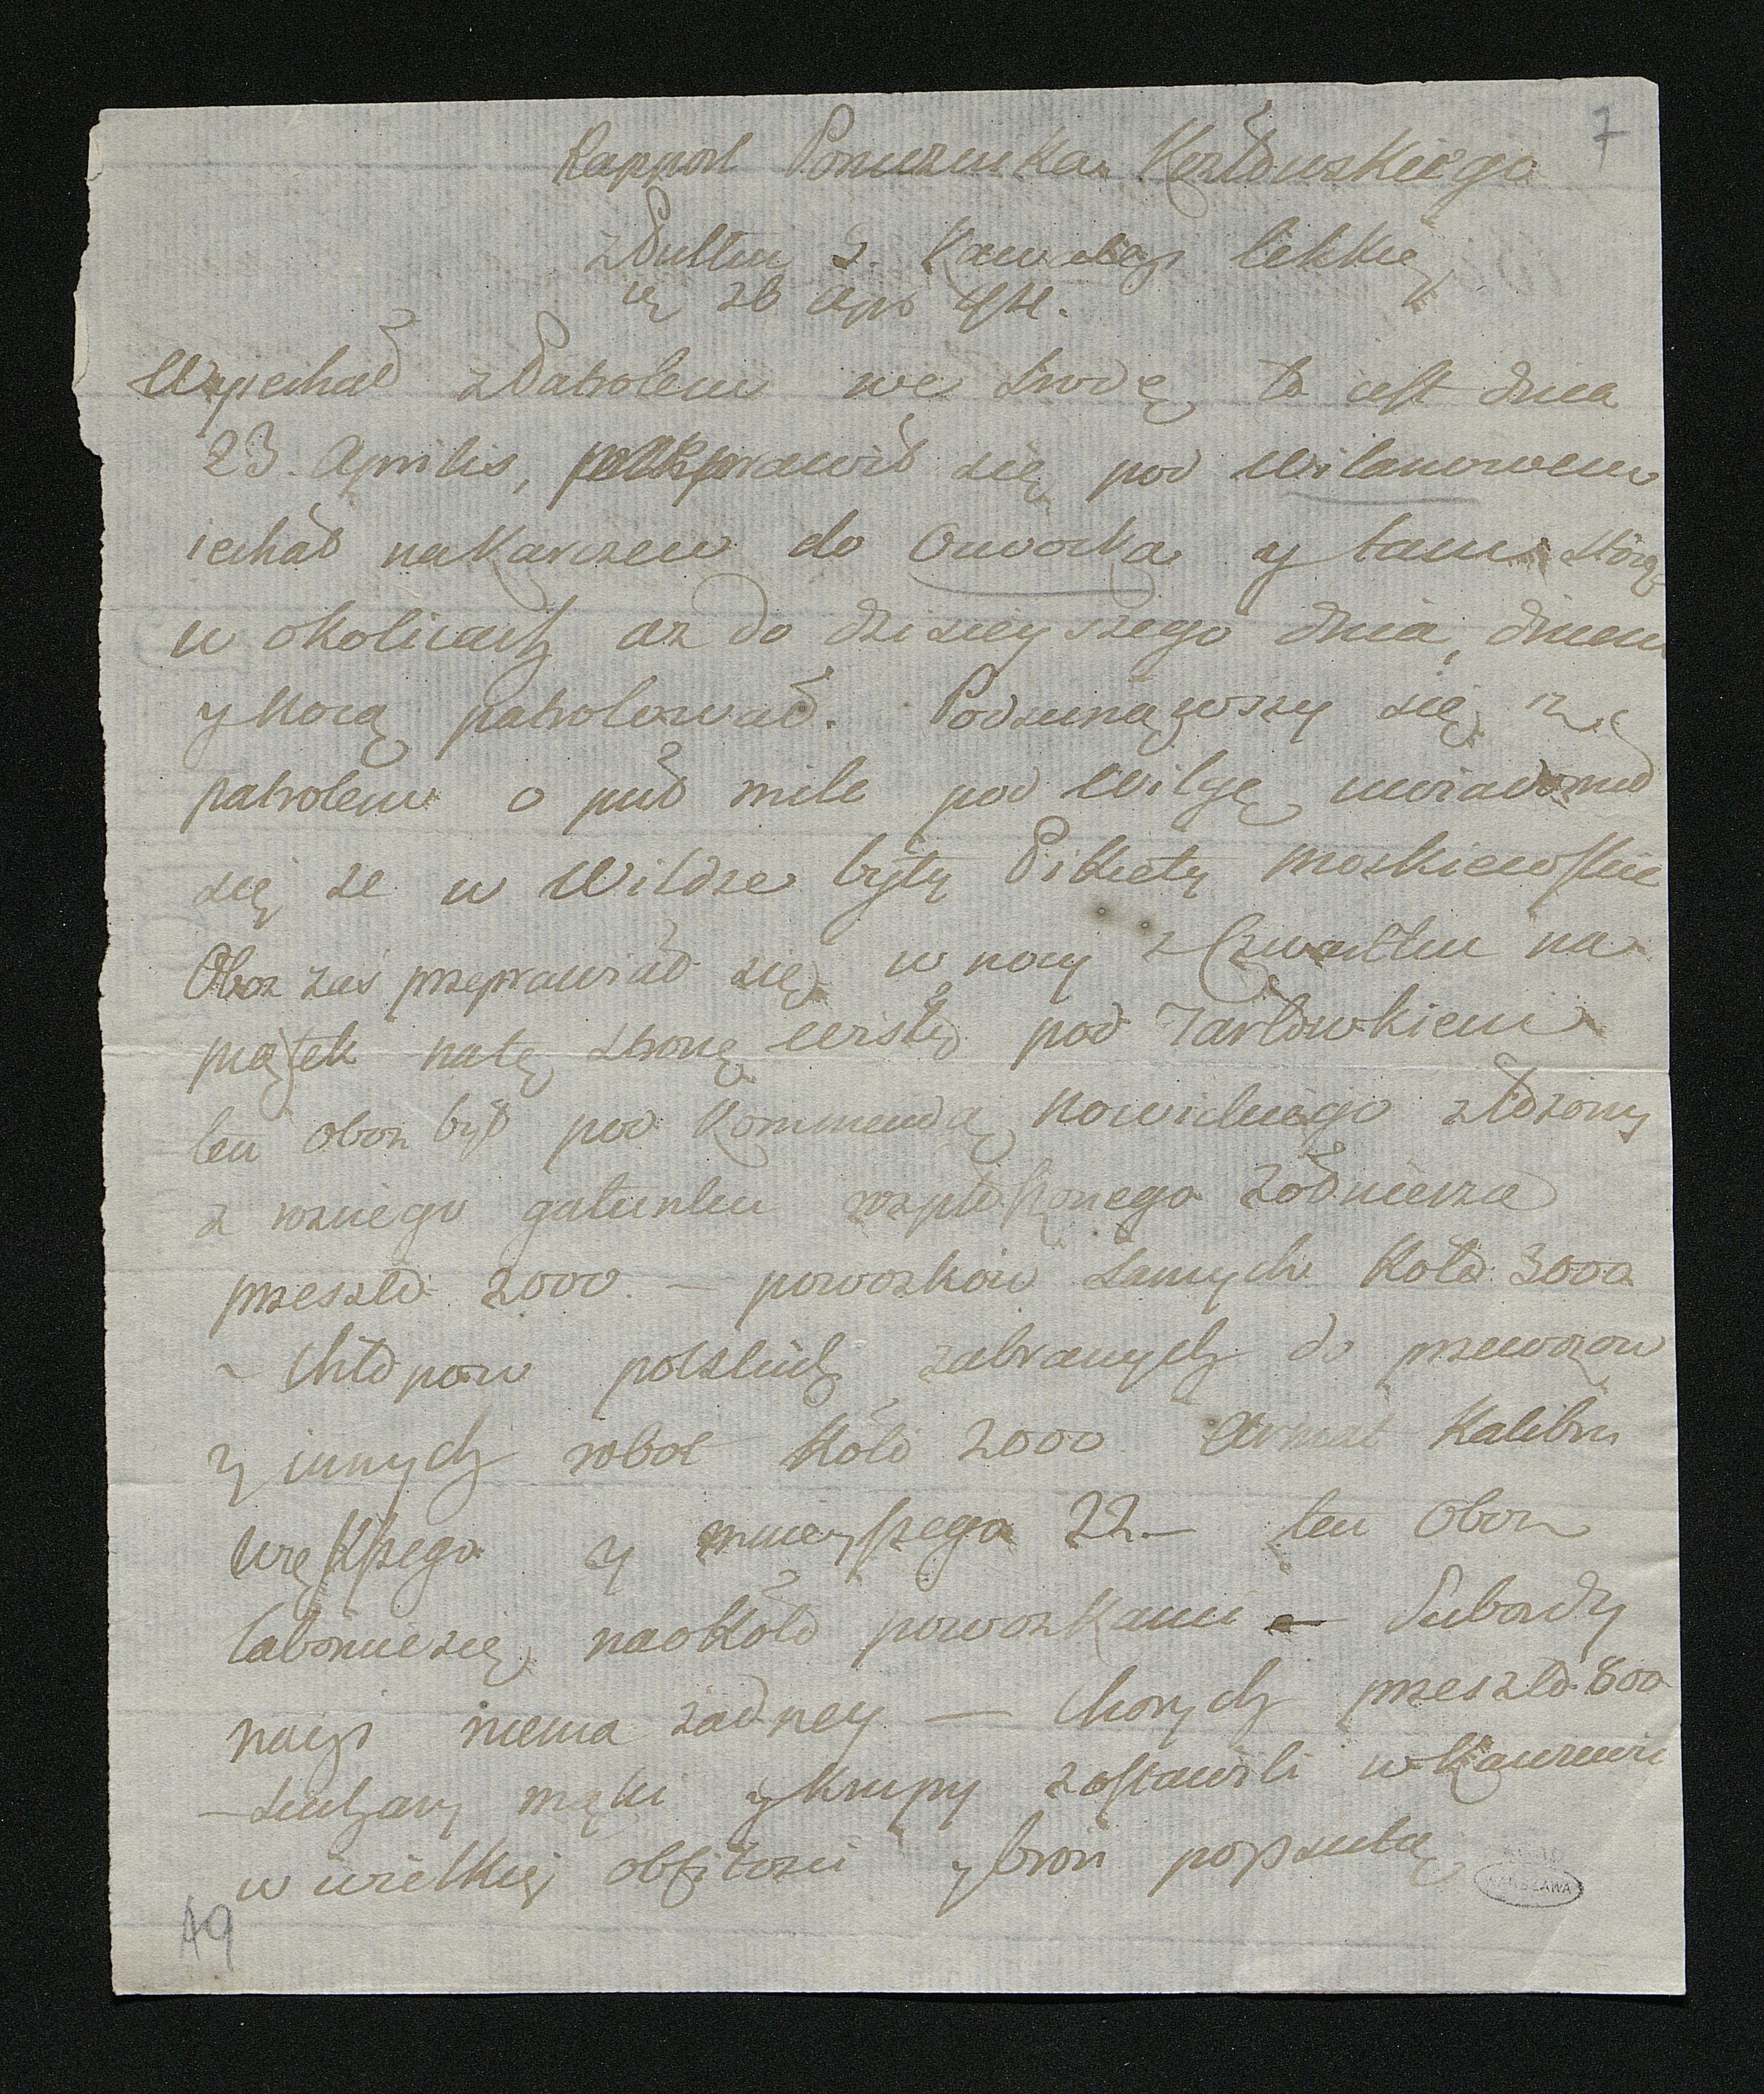 7
Rapport Porucznika Kozłowskiego
z Pułku 5. Kawaleryi lekkiey
26 Apr
Wyjechał z Patrolem we srodę to iest dnia
23. Aprilis, przeprawił się pod Wilanowem
iechał na Karczew do Otwocka y tam
w okolicach az do dzisieyszego dnia, dniem
y Nocą patrolował. Podsunąwszy się z
patrolem o puł mile pod Wilgę uwiadomił
się ze w Wildze były Pikiety Moskiewskie
Oboz zaś przeprawiał się w nocy z Czwartku na
piątek na tę stronę Wisły pod Tarłowkiem
ten oboz był pod Kommendą Nowickiego złożony
z roznego gatunku żołnierza
przeszło 2000. — powozkow samych koło 3000
— Chłopow polskich zabranych do przewozow
y innych robot koło 2000 Armat Kalibru
większego y mnieyszego 22.— ten Oboz
taboruie się naokoło powozkami — Subordy
nacyi niema żadney — Chorych przeszło 800
— Suchary mąki y krupy zostawili w
w wielkiey obfitosci y bron popsutą
WARSZAWA
49